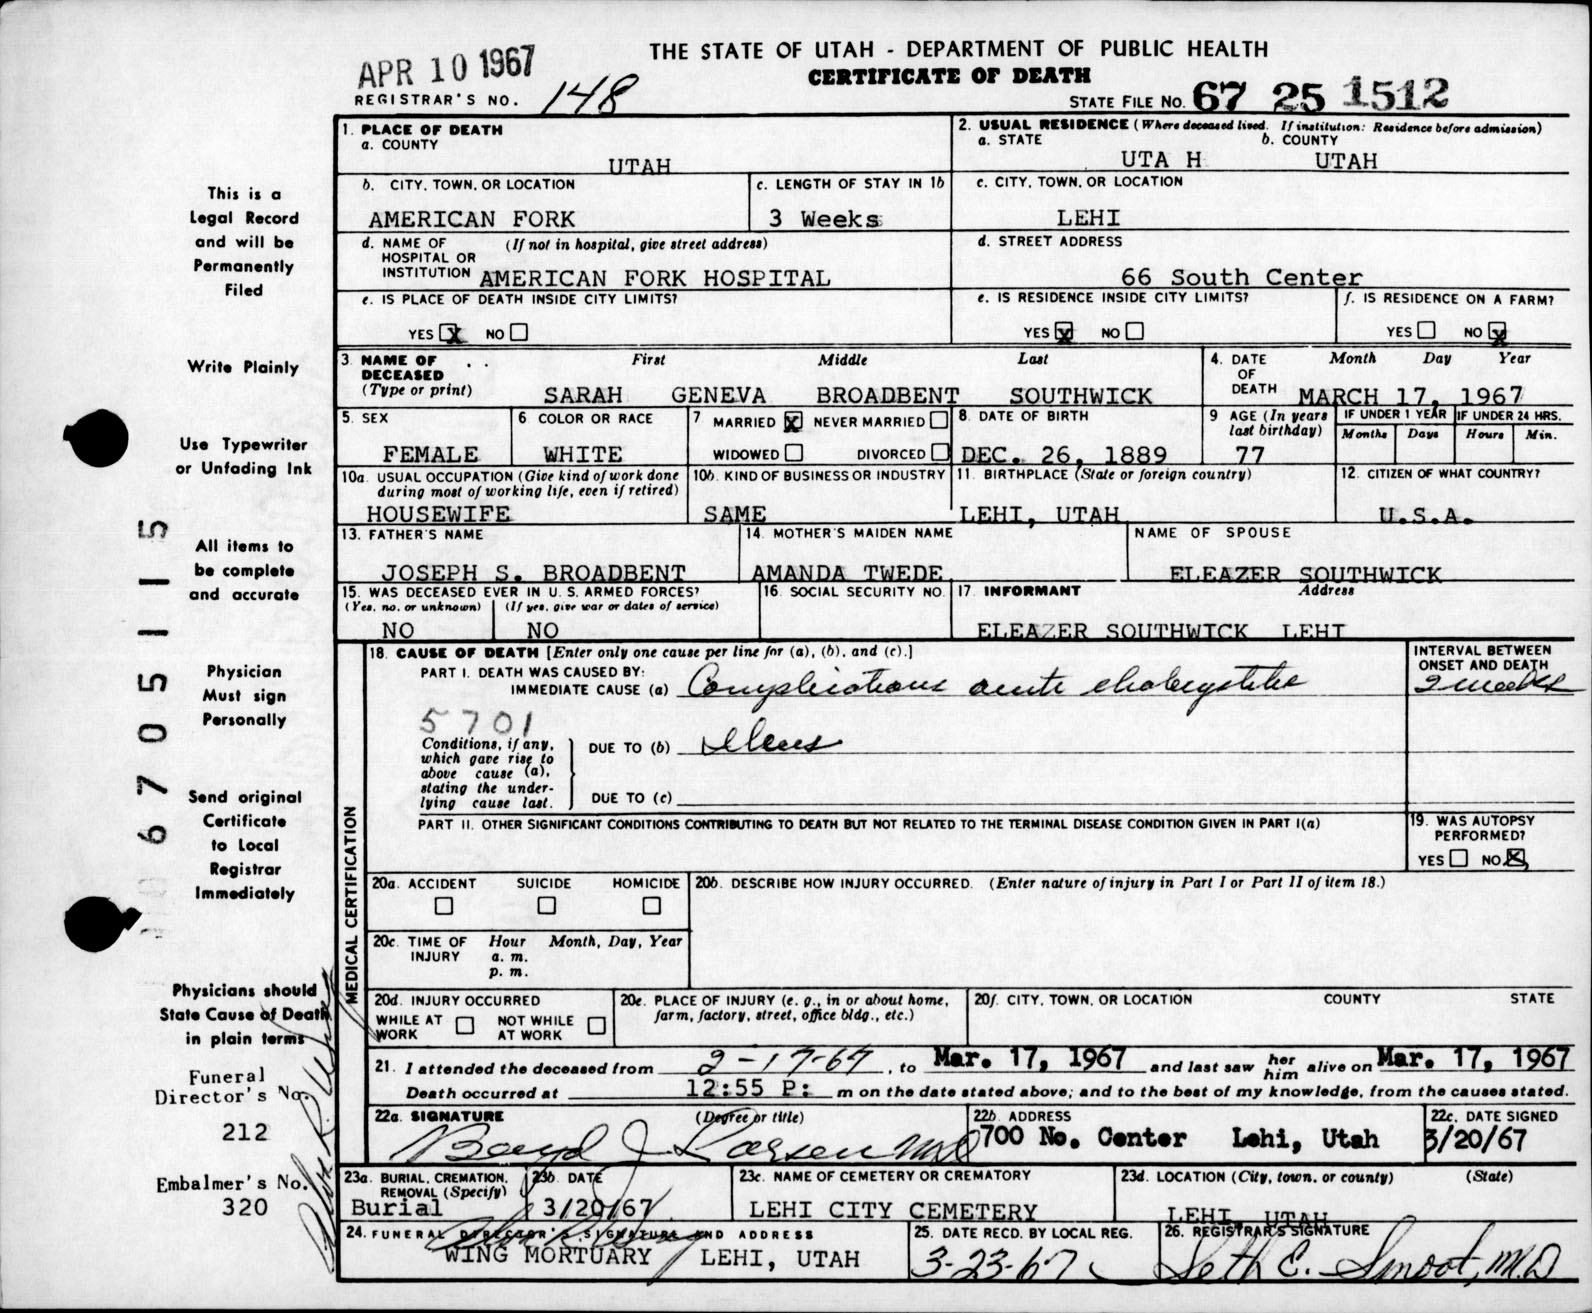 APR 10 1967
REGISTRAR'S NO. 148
THE STATE OF UTAH - DEPARTMENT OF PUBLIC HEALTH
CERTIFICATE OF DEATH
STATE FILE NO. 67 25 1512
This is a
Legal Record
and will be
Permanently
Filed
Write Plainly
Use Typewriter
or Unfading Ink
All items to
be complete
and accurate
Physician
Must sign
Personally
Send original
Certificate
to Local
Registrar
Immediately
Physicians should
State Cause of Death
in plain terms
Funeral
Director's No.
212
Embalmer's No.
320
1. PLACE OF DEATH
a. COUNTY
UTAH
2. USUAL RESIDENCE (Where deceased lived. If institution: Residence before admission)
a. STATE b. COUNTY
UTA H UTAH
b. CITY, TOWN, OR LOCATION
AMERICAN FORK
c. LENGTH OF STAY IN 1b
3 Weeks
c. CITY, TOWN, OR LOCATION
LEHI
d. NAME OF (If not in hospital, give street address)
HOSPITAL OR
INSTITUTION AMERICAN FORK HOSPITAL
d. STREET ADDRESS
66 South Center
e. IS PLACE OF DEATH INSIDE CITY LIMITS?
YES X NO
e. IS RESIDENCE INSIDE CITY LIMITS?
YES X NO
f. IS RESIDENCE ON A FARM?
YES NO X
3. NAME OF First Middle Last
DECEASED
(Type or print) SARAH GENEVA BROADBENT SOUTHWICK
4. DATE Month Day Year
OF
DEATH MARCH 17, 1967
5. SEX
FEMALE
6 COLOR OR RACE
WHITE
7 MARRIED X NEVER MARRIED
WIDOWED DIVORCED
8. DATE OF BIRTH
DEC. 26, 1889
9 AGE (In years
last birthday)
77
IF UNDER 1 YEAR
Months Days
IF UNDER 24 HRS.
Hours Min.
10a. USUAL OCCUPATION (Give kind of work done
during most of working life, even if retired)
HOUSEWIFE
10b. KIND OF BUSINESS OR INDUSTRY
SAME
11. BIRTHPLACE (State or foreign country)
LEHI, UTAH
12. CITIZEN OF WHAT COUNTRY?
U.S.A.
13. FATHER'S NAME
JOSEPH S. BROADBENT
14. MOTHER'S MAIDEN NAME
AMANDA TWEDE
NAME OF SPOUSE
ELEAZER SOUTHWICK
15. WAS DECEASED EVER IN U.S. ARMED FORCES?
(Yes, no, or unknown) (If yes, give war or dates of service)
NO NO
16. SOCIAL SECURITY NO.
17. INFORMANT Address
ELEAZER SOUTHWICK LEHI
MEDICAL CERTIFICATION
18. CAUSE OF DEATH [Enter only one cause per line for (a), (b), and (c).]
PART I. DEATH WAS CAUSED BY:
IMMEDIATE CAUSE (a) Complications acute cholecystitis
INTERVAL BETWEEN
ONSET AND DEATH
2 weeks
5701
Conditions, if any,
which gave rise to
above cause (a),
stating the under-
lying cause last.
DUE TO (b) Ileus
DUE TO (c)
PART II. OTHER SIGNIFICANT CONDITIONS CONTRIBUTING TO DEATH BUT NOT RELATED TO THE TERMINAL DISEASE CONDITION GIVEN IN PART I(a)
19. WAS AUTOPSY
PERFORMED?
YES NO X
20a. ACCIDENT SUICIDE HOMICIDE
20b. DESCRIBE HOW INJURY OCCURRED. (Enter nature of injury in Part I or Part II of item 18.)
20c. TIME OF Hour Month, Day, Year
INJURY a. m.
p. m.
20d. INJURY OCCURRED
WHILE AT WORK NOT WHILE AT WORK
20e. PLACE OF INJURY (e. g., in or about home,
farm, factory, street, office bldg., etc.)
20f. CITY, TOWN, OR LOCATION COUNTY STATE
21. I attended the deceased from 2-17-67, to Mar. 17, 1967 and last saw her him alive on Mar. 17, 1967
Death occurred at 12:55 P: m on the date stated above; and to the best of my knowledge, from the causes stated.
22a. SIGNATURE (Degree or title)
Boyd J Larsen MD
22b. ADDRESS
700 No. Center Lehi, Utah
22c. DATE SIGNED
3/20/67
23a. BURIAL, CREMATION,
REMOVAL (Specify)
Burial
23b. DATE
3/20/67
23c. NAME OF CEMETERY OR CREMATORY
LEHI CITY CEMETERY
23d. LOCATION (City, town, or county) (State)
LEHI, UTAH
24. FUNERAL DIRECTOR'S SIGNATURE AND ADDRESS
WING MORTUARY LEHI, UTAH
25. DATE RECD. BY LOCAL REG.
3-23-67
26. REGISTRAR'S SIGNATURE
Seth E. Smoot, M.D